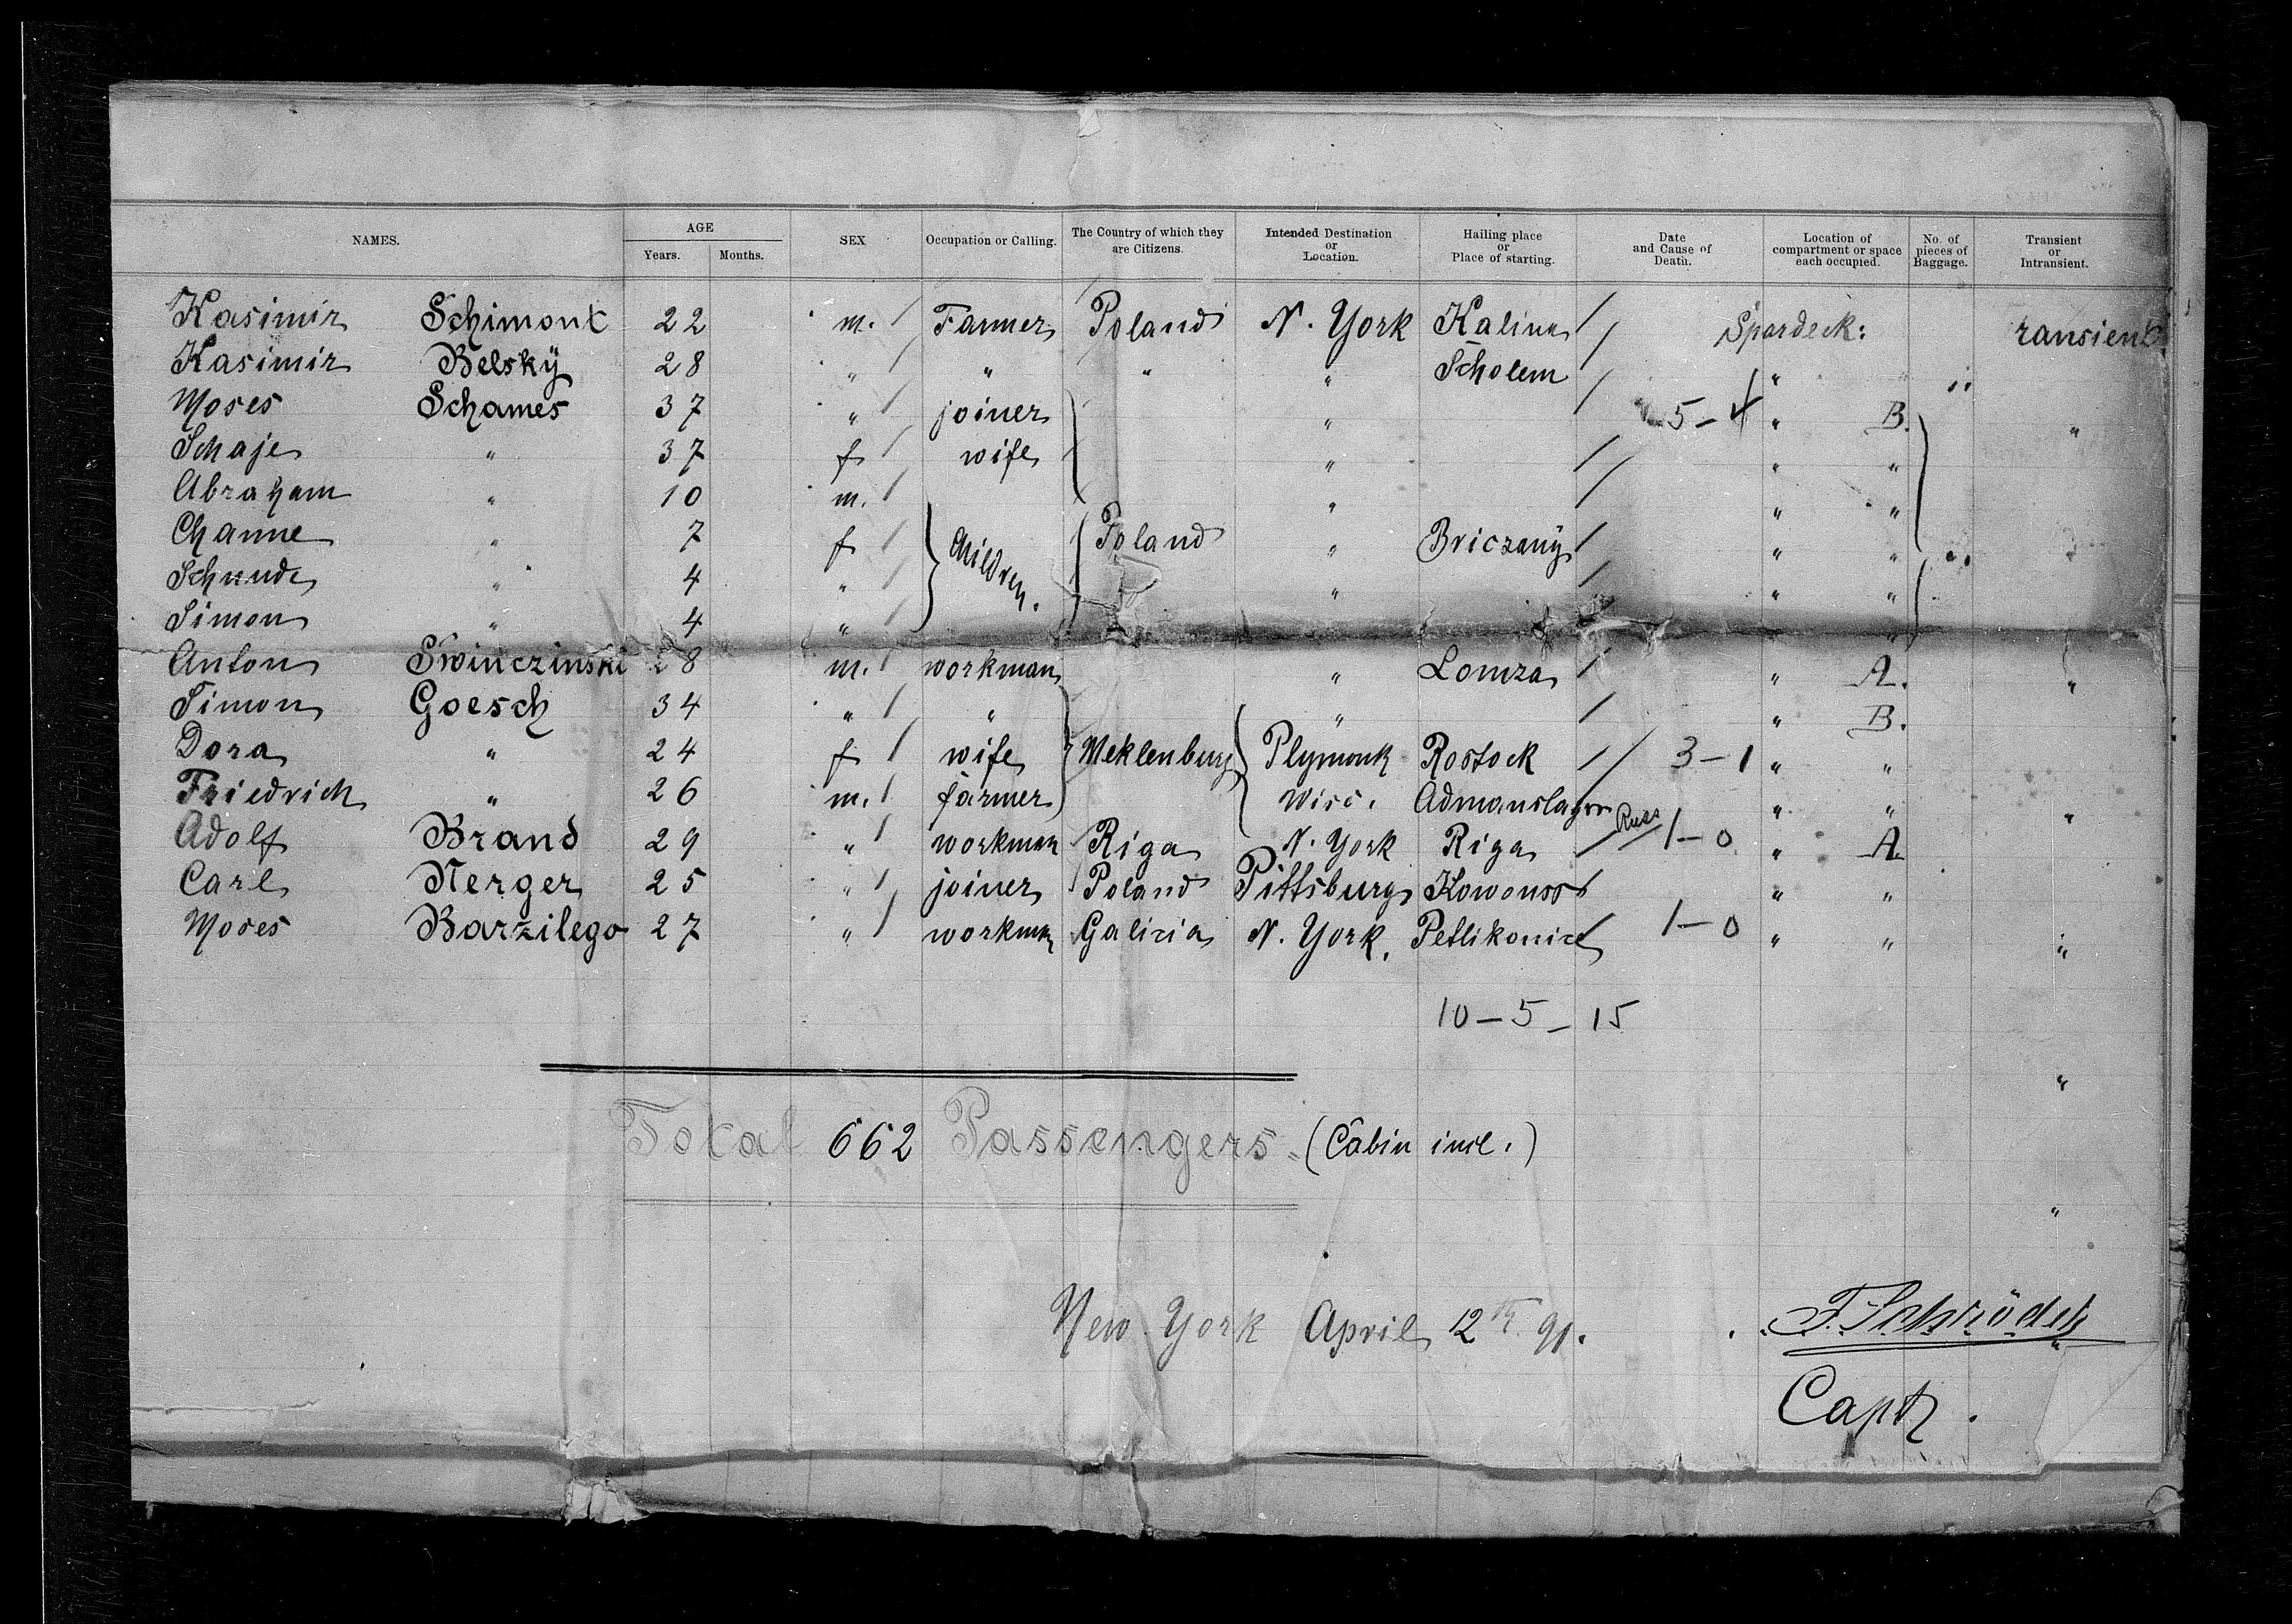 NAMES. AGE Years. Months. SEX Occupation or Calling. The Country of which they are Citizens. Intended Destination or Location. Hailing place or Place of starting. Date and Cause of Death. Location of compartment or space each occupied. No. of pieces of Baggage. Transient or Intransient.
Kasimir Schimont 22 m. Farmer Poland N. York Kalina Spardeck: ransient
Kasimir Belskÿ 28 " " " " Scholem " "
Moses Schames 37 " joiner " 5-4 " B. "
Schaje " 37 f wife " " "
Abraham " 10 m. " " "
Channe " 7 f Children. Poland " Briczanÿ " " "
" 4 " " " "
Simon " 4 " "
Anton Swinczinski 28 m. workman " Lomza " A. "
Simon Goesch 34 " " " " B.
Dora " 24 f wife Meklenburg Plymouth Rostock 3-1 " "
Friedrich " 26 m. farmer Wisc. " " "
Adolf Brand 29 " workman Riga N. York Riga Russ 1-0 " A.
Carl Nerger 25 " joiner Poland Pittsburg " "
Moses Barzilego 27 " workman Galizia N. York. 1-0 " " "
10-5-15
"
Total 662 Passengers. (Cabin incl.)
"
New York April 12th 91. F. Schröder
Capt.